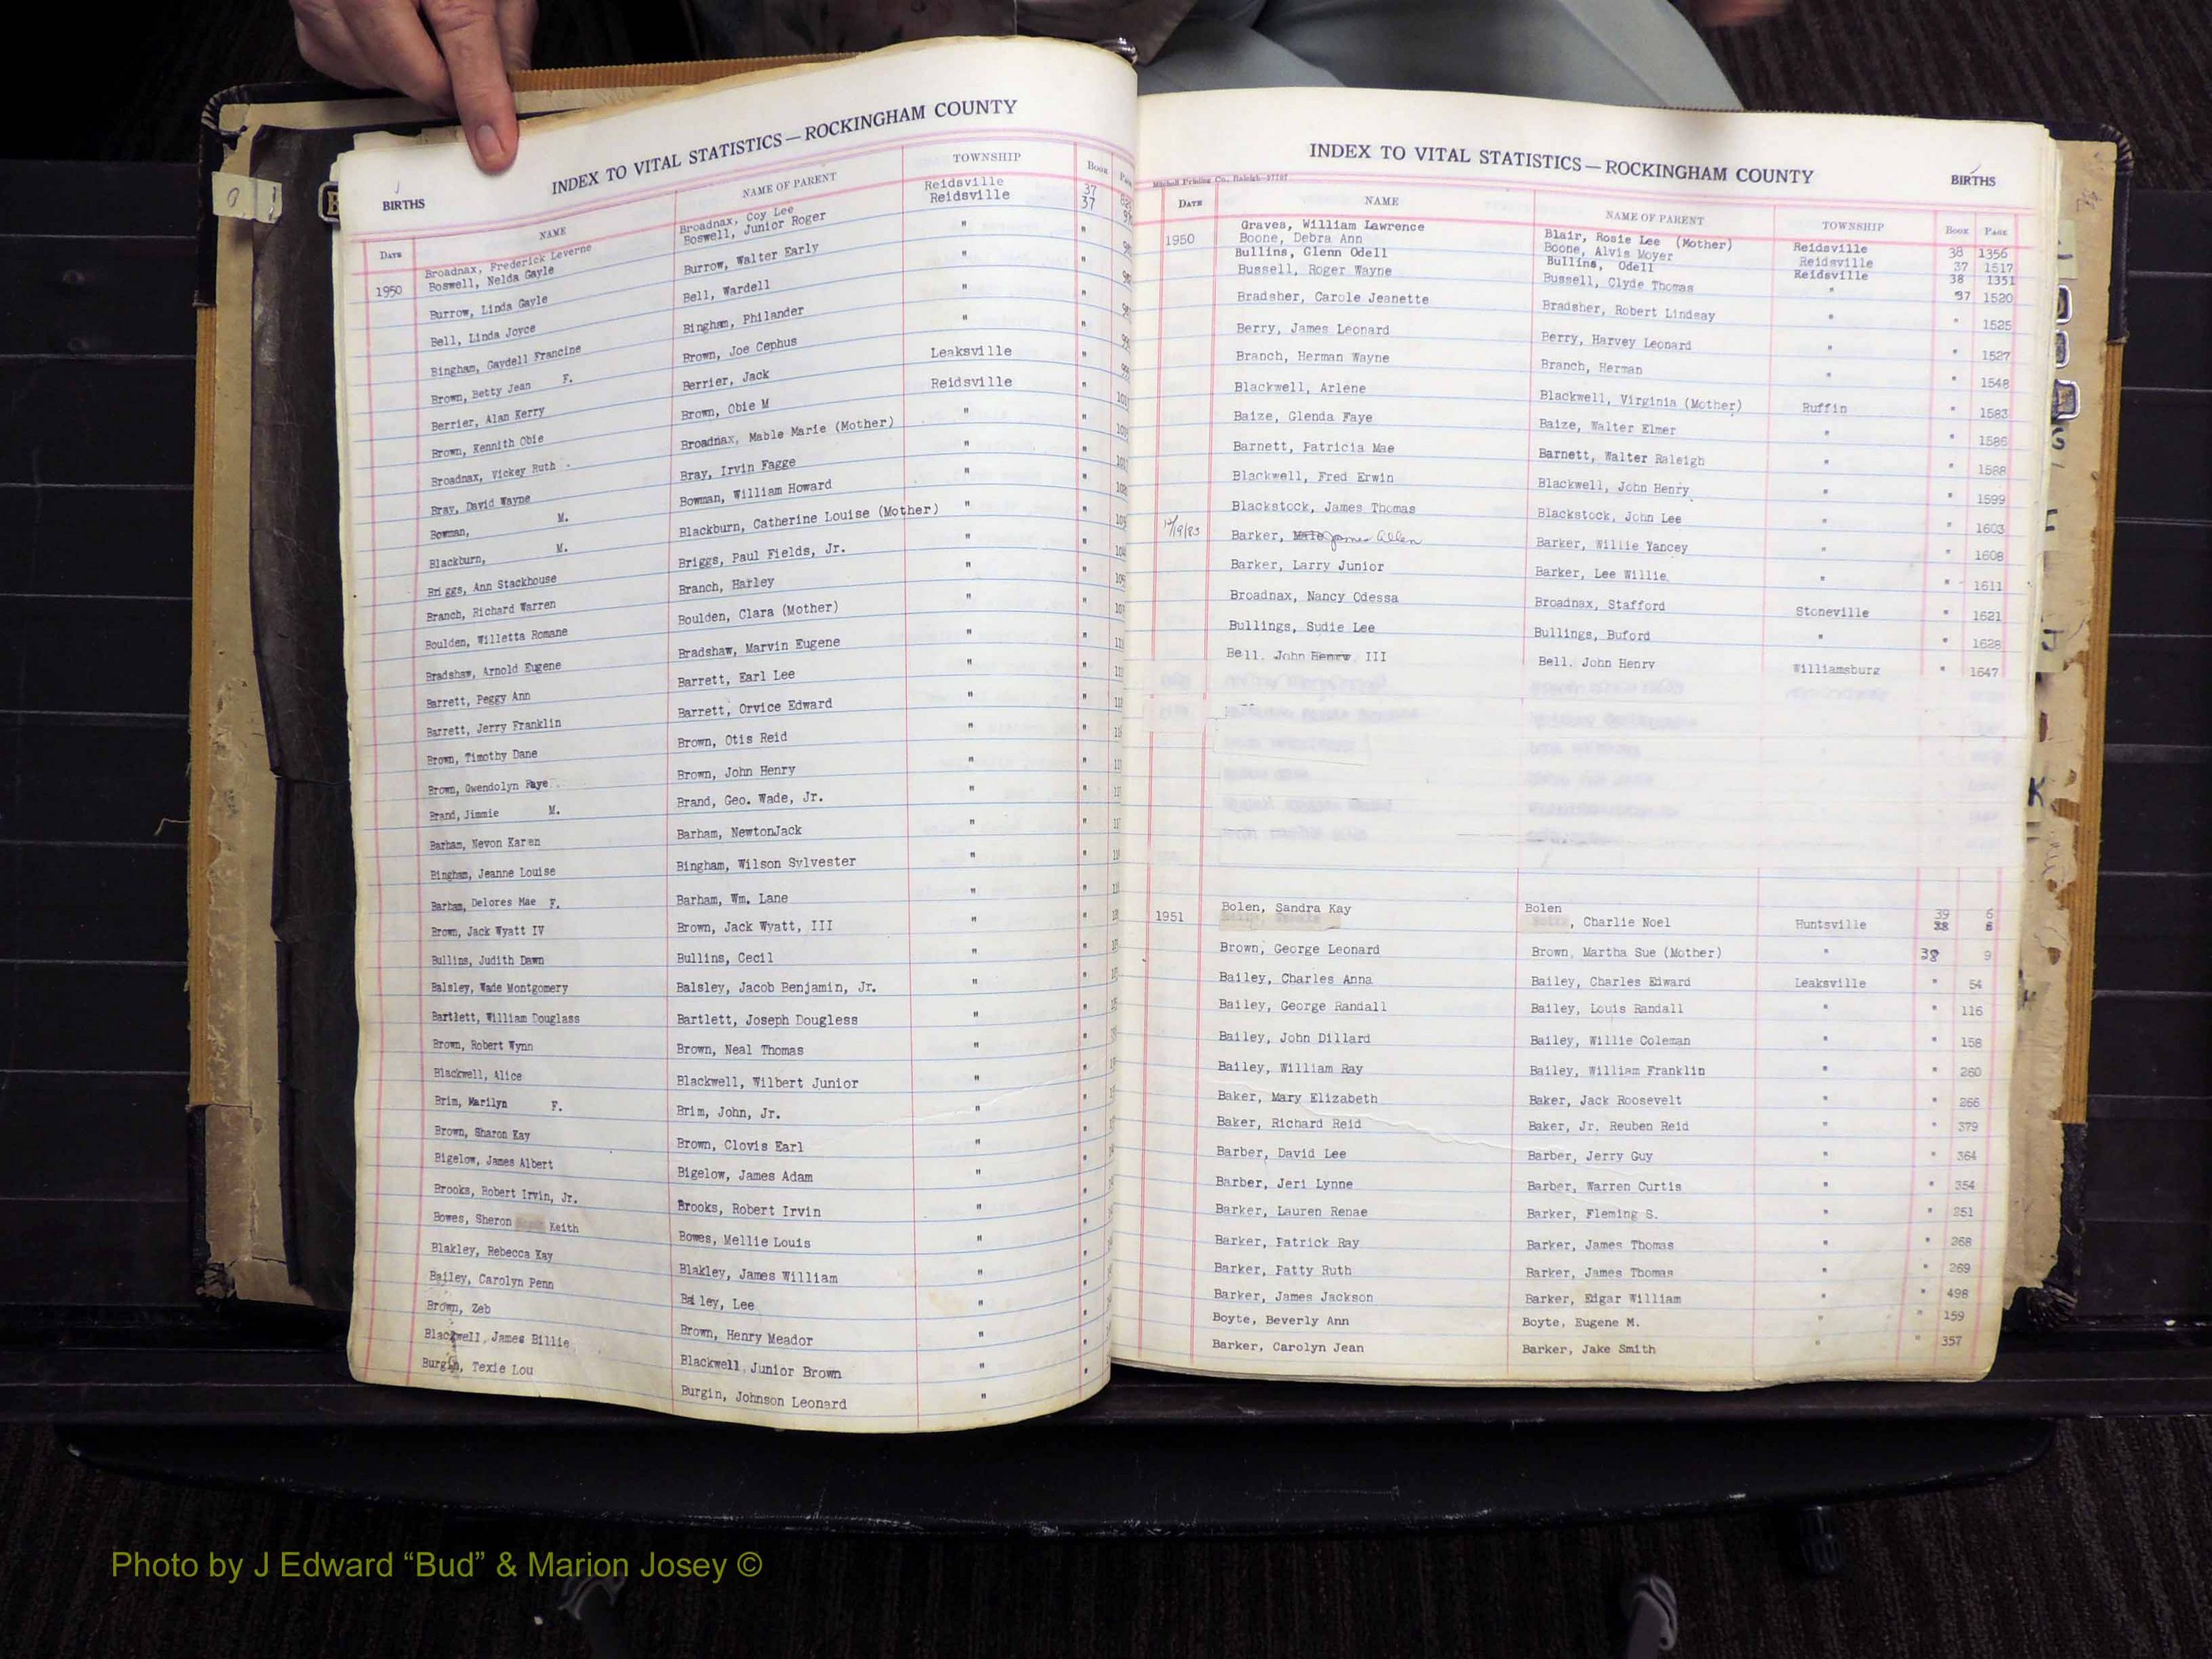 INDEX TO VITAL STATISTICS — ROCKINGHAM COUNTY
BIRTHS
DATE NAME NAME OF PARENT TOWNSHIP BOOK
Broadnax, Frederick Leverne Broadnax, Coy Lee Reidsville 37
1950 Boswell, Nelda Gayle Boswell, Junior Roger Reidsville 37
Burrow, Linda Gayle Burrow, Walter Early " "
Bell, Linda Joyce Bell, Wardell " "
Bingham, Gaydell Francine Bingham, Philander " "
Brown, Betty Jean F. Brown, Joe Cephus " "
Berrier, Alan Kerry Berrier, Jack Leaksville "
Brown, Kennith Obie Brown, Obie M Reidsville "
Broadnax, Vickey Ruth Broadnax, Mable Marie (Mother) " "
Bray, David Wayne Bray, Irvin Fagge " "
Bowman, M. Bowman, William Howard " "
Blackburn, M. Blackburn, Catherine Louise (Mother) " "
Briggs, Ann Stackhouse Briggs, Paul Fields, Jr. " "
Branch, Richard Warren Branch, Harley " "
Boulden, Willetta Romane Boulden, Clara (Mother) " "
Bradshaw, Arnold Eugene Bradshaw, Marvin Eugene " "
Barrett, Peggy Ann Barrett, Earl Lee " "
Barrett, Jerry Franklin Barrett, Orvice Edward " "
Brown, Timothy Dane Brown, Otis Reid " "
Brown, Gwendolyn Faye Brown, John Henry " "
Brand, Jimmie M. Brand, Geo. Wade, Jr. " "
Barham, Nevon Karen Barham, NewtonJack " "
Bingham, Jeanne Louise Bingham, Wilson Sylvester " "
Barham, Delores Mae F. Barham, Wm. Lane " "
Brown, Jack Wyatt IV Brown, Jack Wyatt, III " "
Bullins, Judith Dawn Bullins, Cecil " "
Balsley, Wade Montgomery Balsley, Jacob Benjamin, Jr. " "
Bartlett, William Douglass Bartlett, Joseph Dougless " "
Brown, Robert Wynn Brown, Neal Thomas " "
Blackwell, Alice Blackwell, Wilbert Junior " "
Brim, Marilyn F. Brim, John, Jr. " "
Brown, Sharon Kay Brown, Clovis Earl " "
Bigelow, James Albert Bigelow, James Adam " "
Brooks, Robert Irvin, Jr. Brooks, Robert Irvin " "
Bowes, Sheron Keith Bowes, Mellie Louis " "
Blakley, Rebecca Kay Blakley, James William " "
Bailey, Carolyn Penn Bailey, Lee " "
Brown, Zeb Brown, Henry Meador " "
Blackwell, James Billie Blackwell, Junior Brown " "
Burgin, Texie Lou Burgin, Johnson Leonard "
INDEX TO VITAL STATISTICS — ROCKINGHAM COUNTY
BIRTHS
Mitchell Printing Co., Raleigh
DATE NAME NAME OF PARENT TOWNSHIP BOOK PAGE
Graves, William Lawrence Blair, Rosie Lee (Mother) Reidsville 38 1356
1950 Boone, Debra Ann Boone, Alvis Moyer Reidsville 37 1517
Bullins, Glenn Odell Bullins, Odell Reidsville 38 1351
Bussell, Roger Wayne Bussell, Clyde Thomas " 37 1520
Bradsher, Carole Jeanette Bradsher, Robert Lindsay " " 1525
Berry, James Leonard Berry, Harvey Leonard " " 1527
Branch, Herman Wayne Branch, Herman " " 1548
Blackwell, Arlene Blackwell, Virginia (Mother) Ruffin " 1583
Baize, Glenda Faye Baize, Walter Elmer " " 1586
Barnett, Patricia Mae Barnett, Walter Raleigh " " 1588
Blackwell, Fred Erwin Blackwell, John Henry " " 1599
Blackstock, James Thomas Blackstock, John Lee " " 1603
12/19/83 Barker, Male James Allen Barker, Willie Yancey " " 1608
Barker, Larry Junior Barker, Lee Willie " " 1611
Broadnax, Nancy Odessa Broadnax, Stafford Stoneville " 1621
Bullings, Sudie Lee Bullings, Buford " " 1628
Bell, John Henry, III Bell, John Henry Williamsburg " 1647
1951 Bolen, Sandra Kay Bolen, Charlie Noel Huntsville 39 6
38 8
Brown, George Leonard Brown, Martha Sue (Mother) " 38 9
Bailey, Charles Anna Bailey, Charles Edward Leaksville " 54
Bailey, George Randall Bailey, Louis Randall " " 116
Bailey, John Dillard Bailey, Willie Coleman " " 158
Bailey, William Ray Bailey, William Franklin " " 260
Baker, Mary Elizabeth Baker, Jack Roosevelt " " 266
Baker, Richard Reid Baker, Jr. Reuben Reid " " 379
Barber, David Lee Barber, Jerry Guy " " 364
Barber, Jeri Lynne Barber, Warren Curtis " " 354
Barker, Lauren Renae Barker, Fleming S. " " 251
Barker, Patrick Ray Barker, James Thomas " " 268
Barker, Patty Ruth Barker, James Thomas " " 269
Barker, James Jackson Barker, Edgar William " " 498
Boyte, Beverly Ann Boyte, Eugene M. " " 159
Barker, Carolyn Jean Barker, Jake Smith " " 357
Photo by J Edward “Bud” & Marion Josey ©